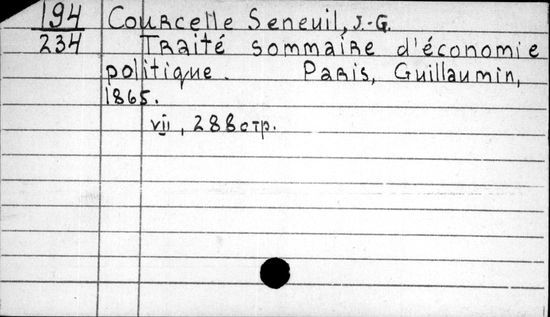 194 Courcelle Seneuil, J.-G.
234 Traité sommaire d'économie
politique. Paris, Guillaumin,
1865.
vii, 288 стр.